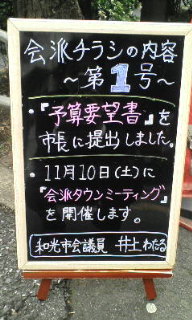 会派チラシの内容
～第1号～
・『予算要望書』を
市長に提出しました。
・11月10日(土)に
『会派タウンミーティング』
を開催します。
和光市会議員 井上わたる